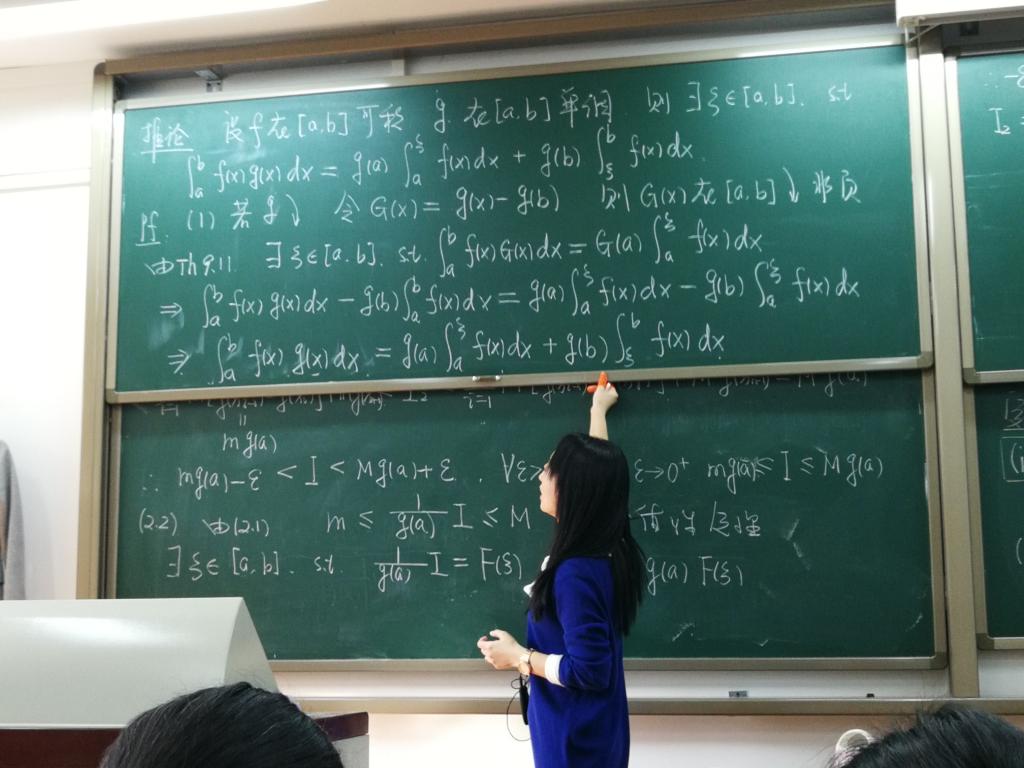 推论 设f在[a,b]可积 g在[a,b]单调 则∃ξ∈[a,b], s.t
∫_a^b f(x)g(x)dx = g(a)∫_a^ξ f(x)dx + g(b)∫_ξ^b f(x)dx.
Pf. (1) 若g↓ 令G(x)= g(x)-g(b) 则G(x)在[a,b]↓非负
由Th9.11 ∃ξ∈[a,b], s.t. ∫_a^b f(x)G(x)dx = G(a)∫_a^ξ f(x)dx
⇒ ∫_a^b f(x)g(x)dx - g(b)∫_a^b f(x)dx = g(a)∫_a^ξ f(x)dx - g(b)∫_a^ξ f(x)dx
⇒ ∫_a^b f(x)g(x)dx = g(a)∫_a^ξ f(x)dx + g(b)∫_ξ^b f(x)dx
i=1
mg(a)
∴ mg(a)-ε < I < Mg(a)+ε. ∀ε> ε→0⁺ mg(a)≤I≤Mg(a)
(2.2) 由(2.1) m ≤ 1/g(a) I ≤ M 定理
∃ξ∈[a,b], s.t. 1/g(a) I = F(ξ) g(a)F(ξ)
I₂ =